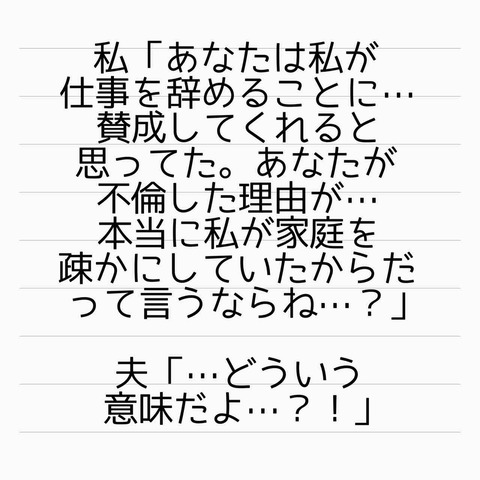 私「あなたは私が
仕事を辞めることに…
賛成してくれると
思ってた。あなたが
不倫した理由が…
本当に私が家庭を
疎かにしていたからだ
って言うならね…？」
夫「…どういう
意味だよ…？！」